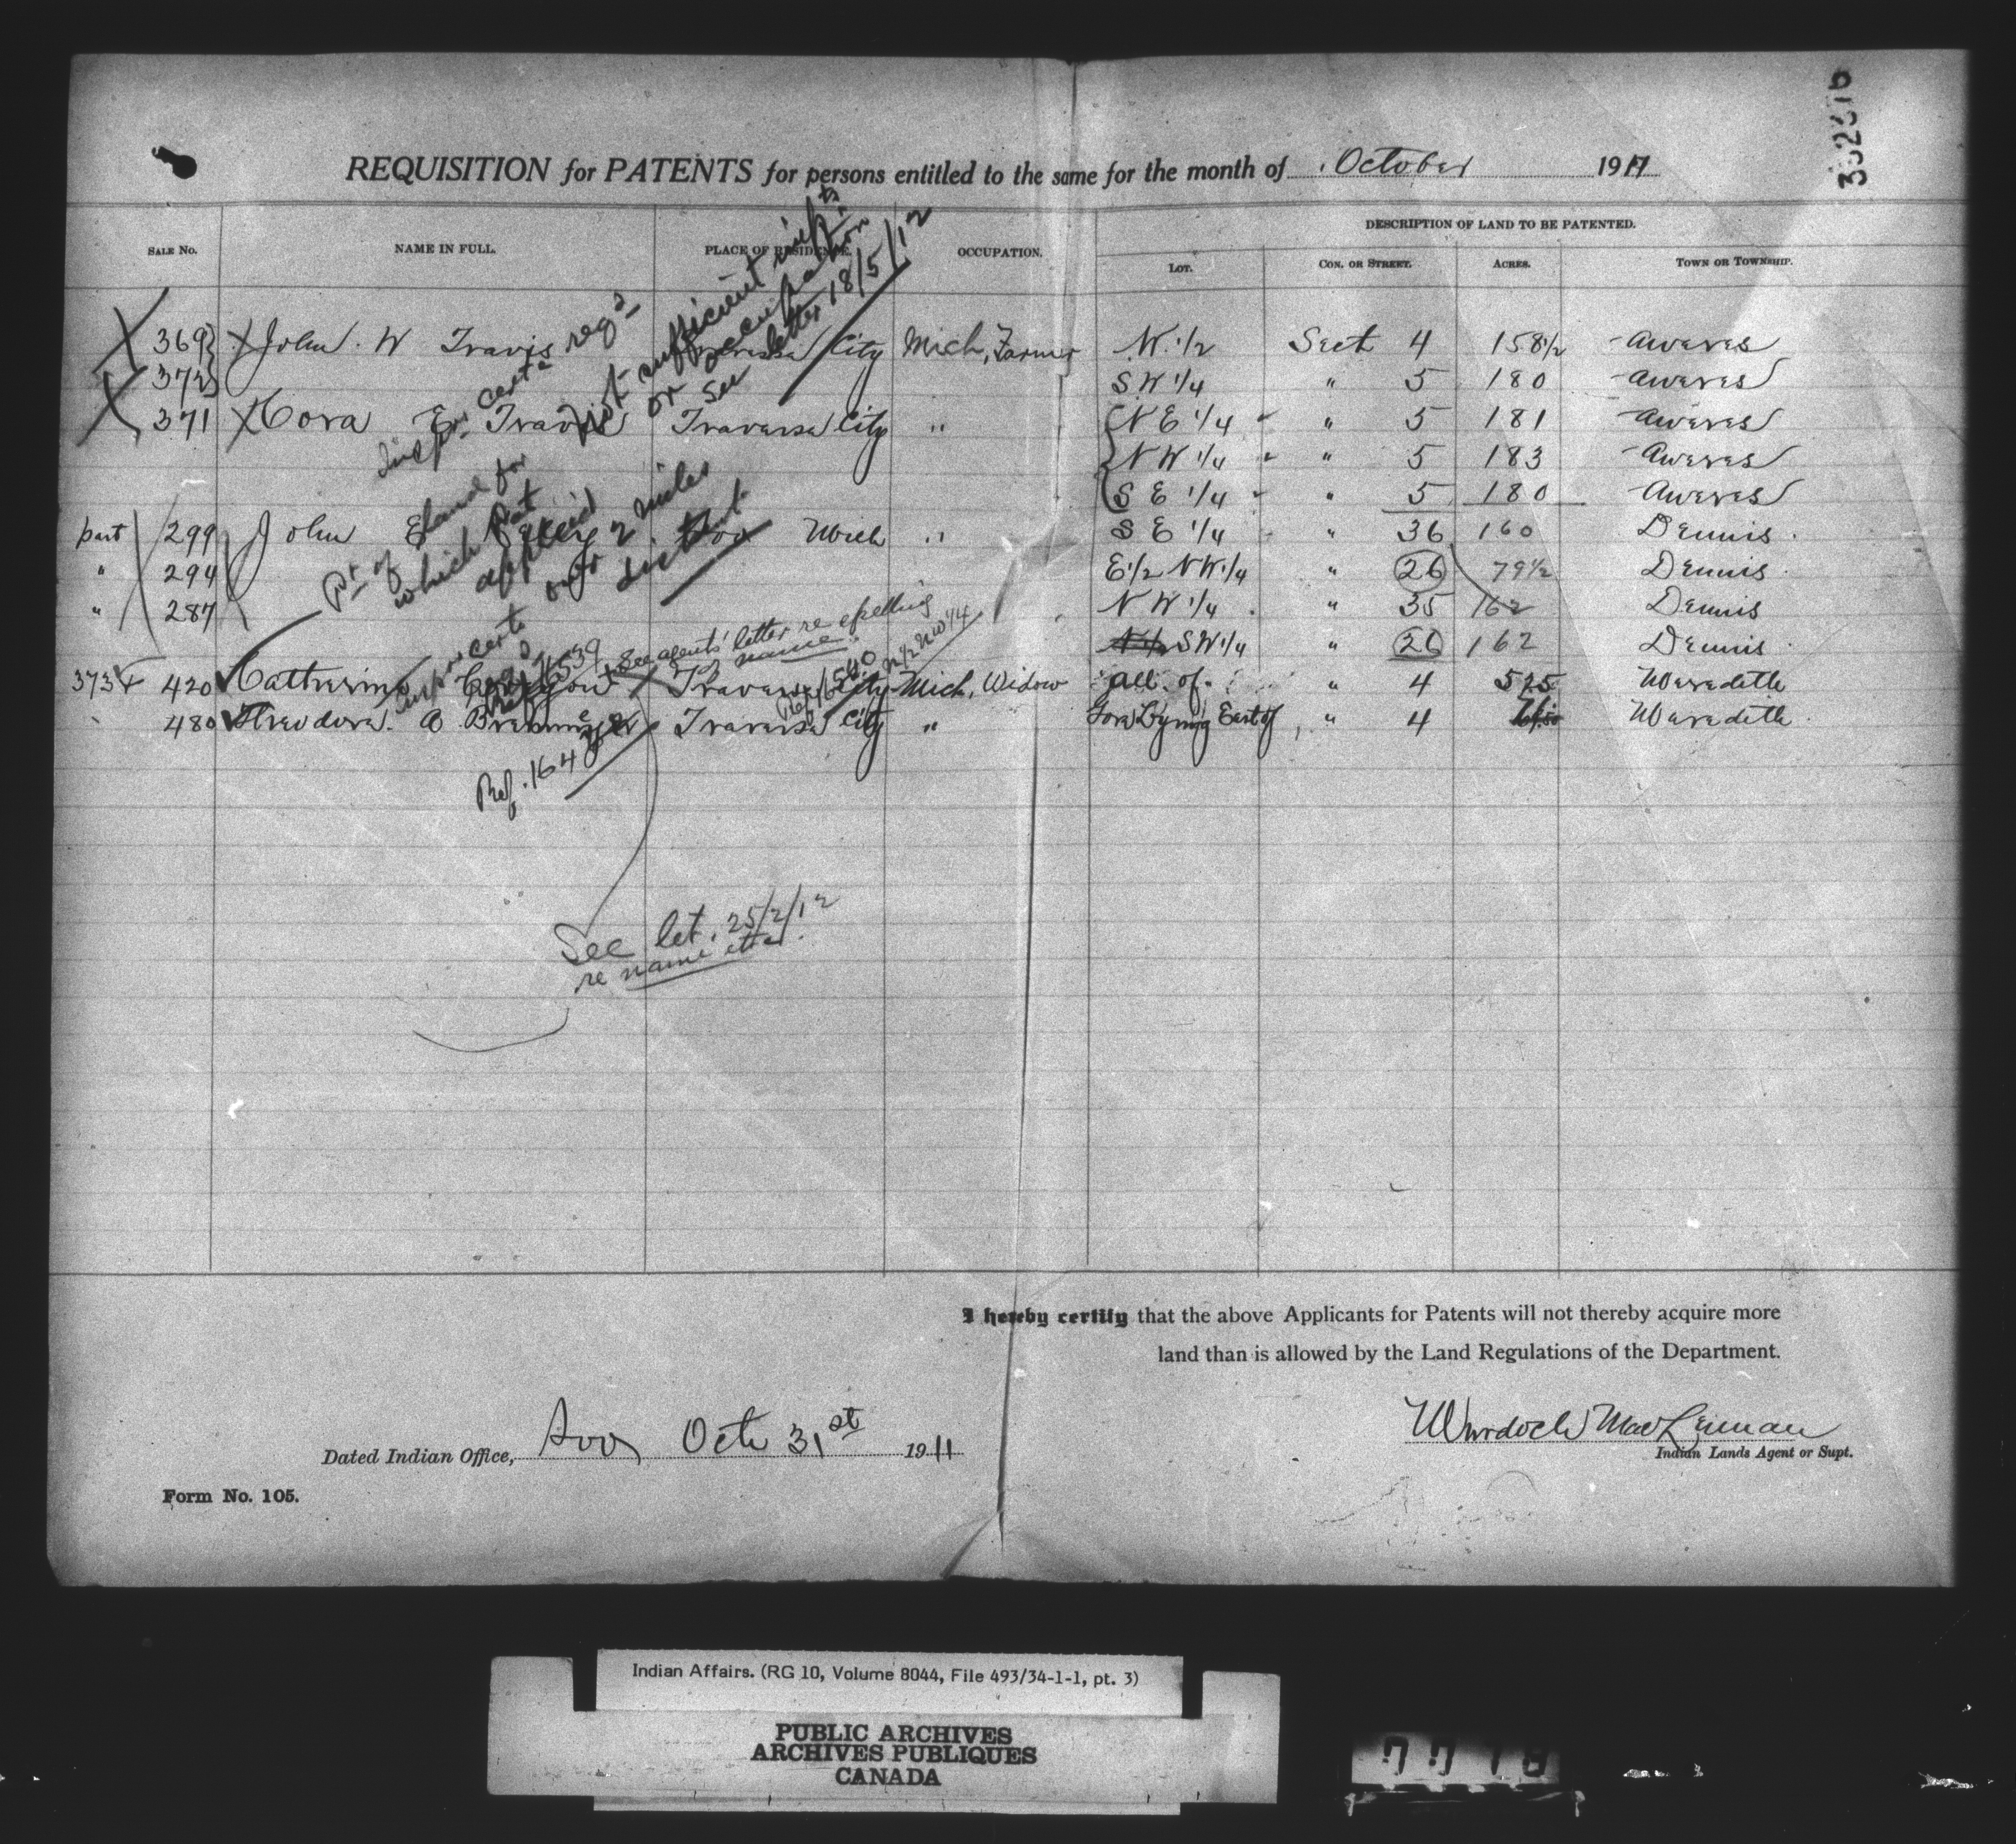 332376
REQUISITION for PATENTS for persons entitled to the same for the month of October 1911
DESCRIPTION OF LAND TO BE PATENTED.
SALE NO. NAME IN FULL. PLACE OF RESIDENCE. OCCUPATION. LOT. CON. OR STREET. ACRES. TOWN OR TOWNSHIP.
369 John. W Travis Traversa City Mich, Farmer N. 1/2 Sect 4 158 1/2 Awares
372 S. W 1/4 " 5 180 Awares
371 Cora E. Travis Traversa City " N E 1/4 " 5 181 Awares
N W 1/4 " 5 183 Awares
S E 1/4 " 5 180 Awares
part 299 John Soo Mich " S E 1/4 " 36 160 Dennis
" 294 E 1/2 N W 1/4 " 26 79 1/2 Dennis
" 287 N W 1/4 " 35 162 Dennis
N 1/2 S W 1/4 " 26 162 Dennis
373 & 420 Catherine Traversa City Mich, Widow all of " 4 525 Maradeth
480 Theodora. A Traversa City " Gore Lying East of " 4 Maradeth
Insp. or certe reqd
Not sufficient impts
or occupation
See letter 18/5/12
Pt of land for
which Pat
applied
over 2 miles
distant
insp or certe
reqd
See agents' letter re spelling
name.
Ref. 16539
Ref. 16540
N 1/2 NW 1/4
Ref. 164
See let. 25/2/12
re name etta.
I hereby certify that the above Applicants for Patents will not thereby acquire more
land than is allowed by the Land Regulations of the Department.
Dated Indian Office, Soo Oct 31st 1911
Murdoch MacLennan
Indian Lands Agent or Supt.
Form No. 105.
Indian Affairs. (RG 10, Volume 8044, File 493/34-1-1, pt. 3)
PUBLIC ARCHIVES
ARCHIVES PUBLIQUES
CANADA